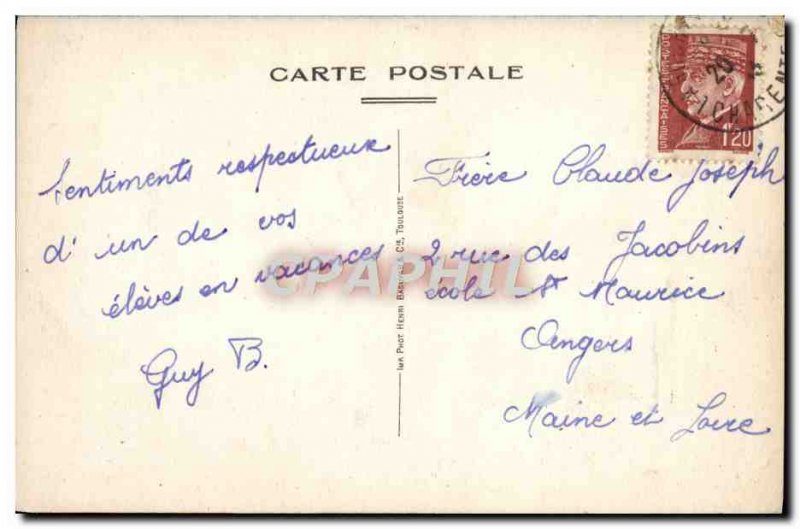 CARTE POSTALE
Sentiments respectueux
d'un de vos
élèves en vacances
Guy B.
IMP. PHOT. HENRI & Cie, TOULOUSE
Frère Claude Joseph
2 rue des Jacobins
école St Maurice
Angers
Maine et Loire
POSTES FRANCAISES
1F20
20
CHARENTE
CPAPHIL